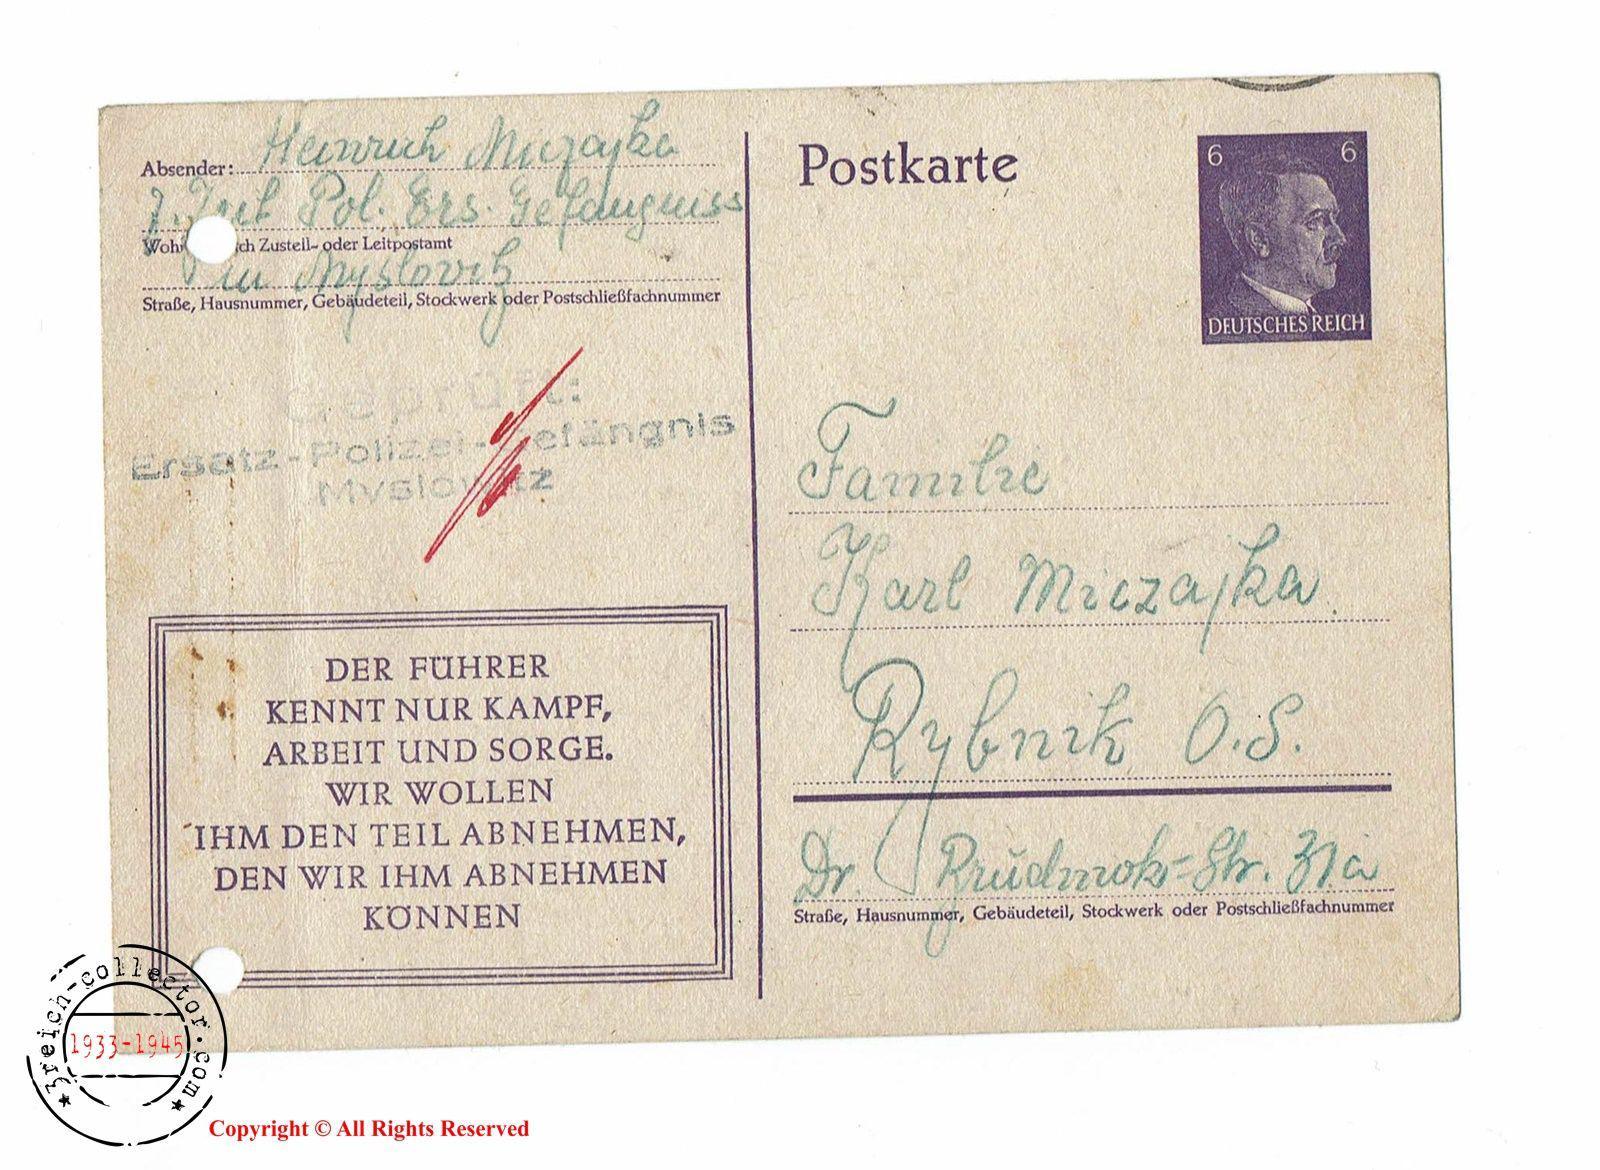 Absender: Heinrich Miczajka
z. Zeit Pol. Ers. Gefängniss
Woh ch Zustell- oder Leitpostamt
in Myslovitz
Straße, Hausnummer, Gebäudeteil, Stockwerk oder Postschließfachnummer
Geprüft:
Ersatz-Polizei-Gefängnis
Myslowitz
DER FÜHRER
KENNT NUR KAMPF,
ARBEIT UND SORGE.
WIR WOLLEN
IHM DEN TEIL ABNEHMEN,
DEN WIR IHM ABNEHMEN
KÖNNEN
Postkarte
6 6
DEUTSCHES REICH
Familie
Karl Miczajka
Rybnik O.S.
Dr. Str. 31a
Straße, Hausnummer, Gebäudeteil, Stockwerk oder Postschließfachnummer
3reich-collector.com
1933-1945
Copyright © All Rights Reserved